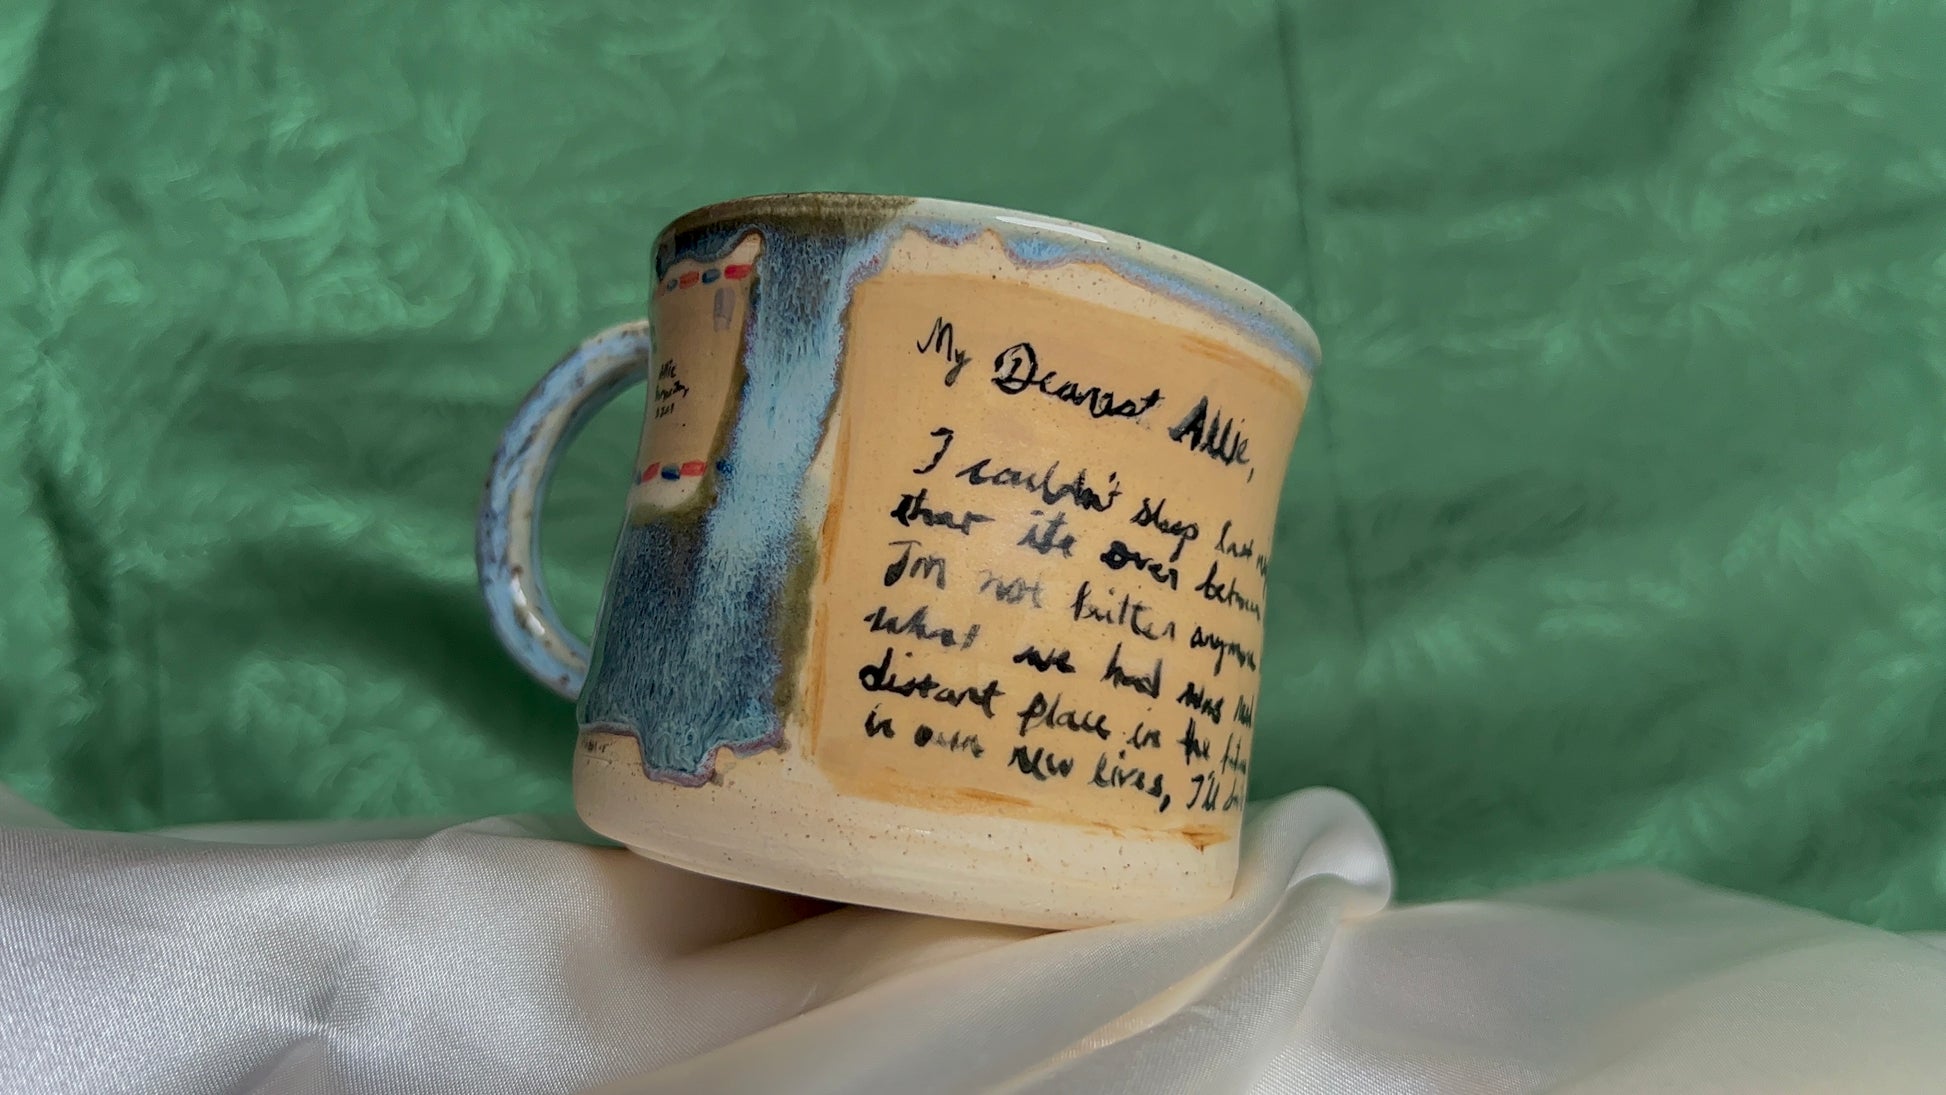 Allie
My Dearest Allie,
I couldn't sleep last
that its over between
I'm not bitter anymore
what we had was real
distant place in the future
in our new lives, I'll